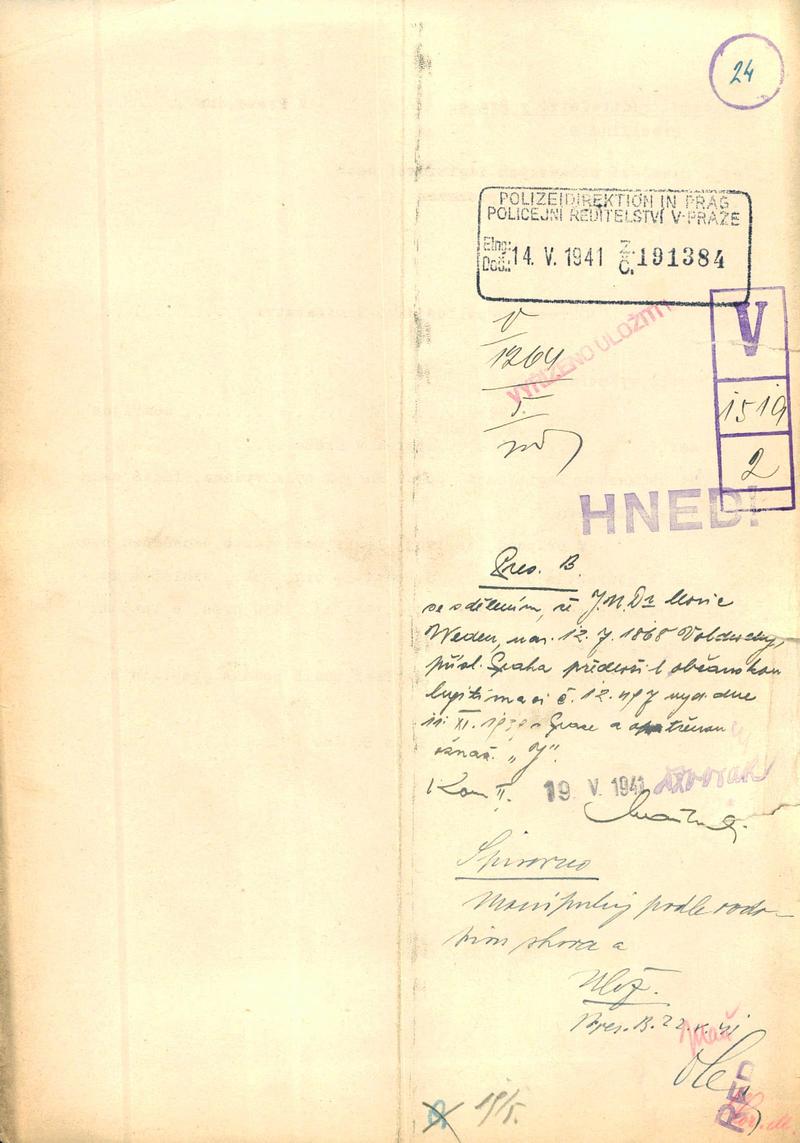 24
POLIZEIDIREKTION IN PRAG
POLICEJNÍ ŘEDITELSTVÍ V PRAZE
Eing:
Došl.: 14. V. 1941 Z. Č. 191384
V
1264
5.
VYŘÍZENO ULOŽITI!
V
1519
2
HNED!
Pres. B.
se sdělením, že J.U.Dr Moric
Weden, nar. 12. 7. 1868
přísl. Praha předložil občanskou
legitimaci č. 12.497 vyd. dne
11. XI. 1939 v Praze a opatřenou
označ. „J".
Kom II. 19 V. 1941
Spisovno
Manipuluj podle
shora a
Ulož.
Pres. B. 22. V. 41
RED
19/5.